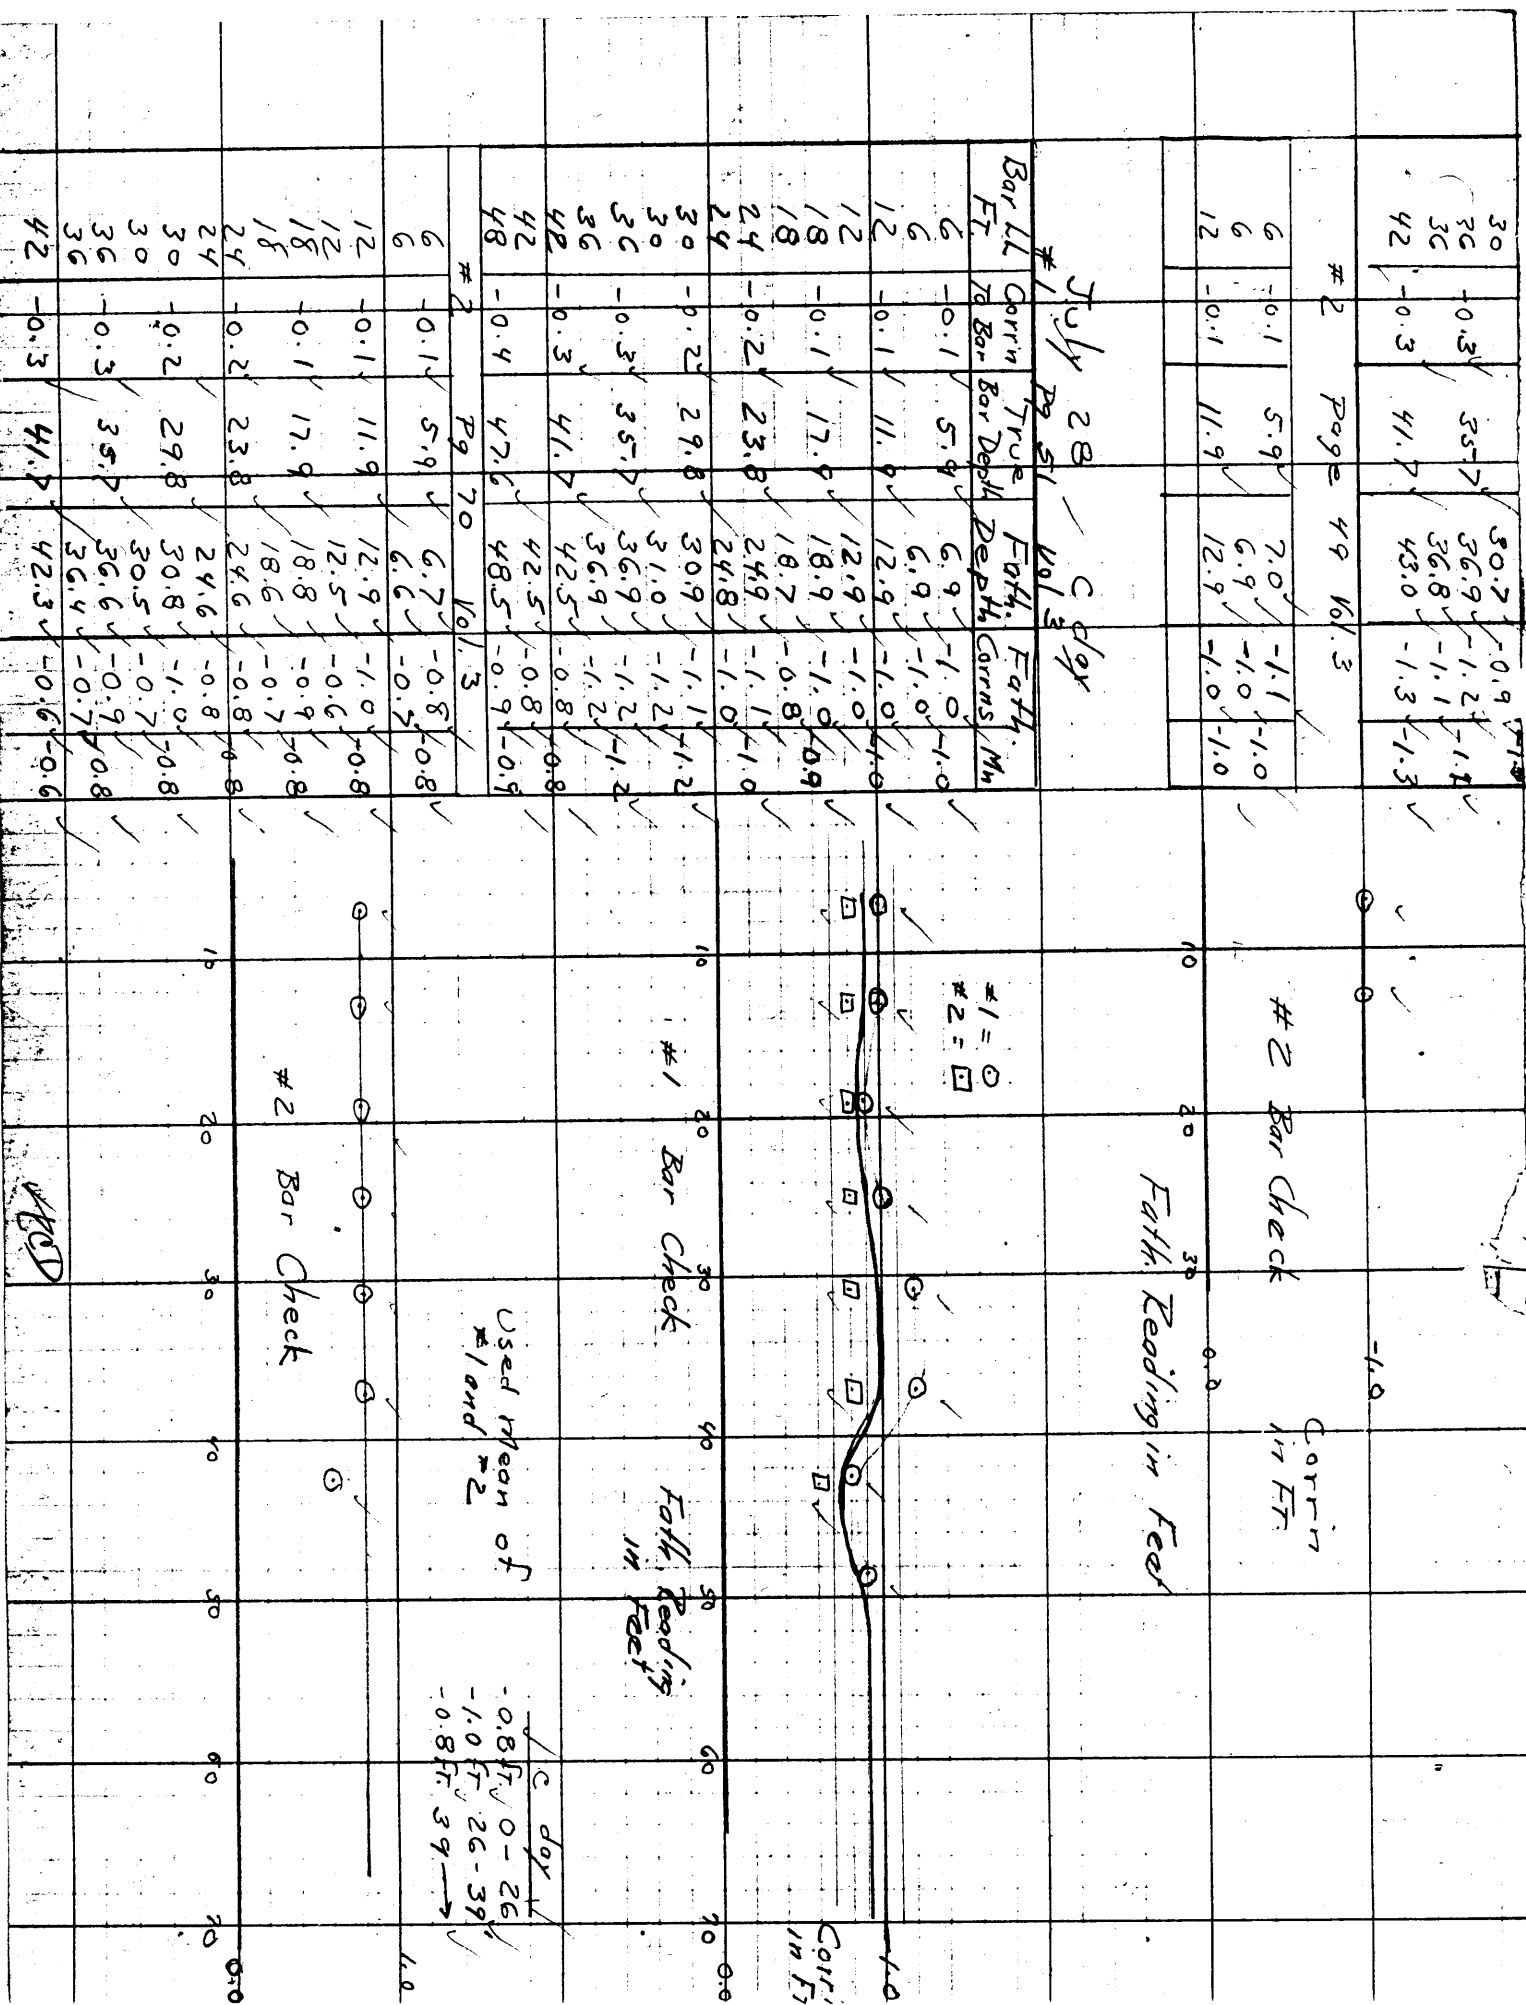 30 30.7 -0.9
36 -0.3 35.7 36.9 -1.2
36 36.8 -1.1
42 -0.3 41.7 43.0 -1.3 -1.3
#2 Page 49 Vol. 3
6 -0.1 5.9 7.0 -1.1 -1.0
6 6.9 -1.0
12 -0.1 11.9 12.9 -1.0 -1.0
July 28 - C day
#1 Pg 51 Vol 3
Bar LL Corr'n True Fath. Fath.
Ft. To Bar Bar Depth Depth Corrns Mn
6 -0.1 5.9 6.9 -1.0 -1.0
6 6.9 -1.0
12 -0.1 11.9 12.9 -1.0 -1.0
12 12.9 -1.0
18 -0.1 17.9 18.9 -1.0 -0.9
18 18.7 -0.8
24 -0.2 23.8 24.9 -1.1 -1.0
24 24.8 -1.0
30 -0.2 29.8 30.9 -1.1 -1.2
30 31.0 -1.2
36 -0.3 35.7 36.9 -1.2 -1.2
36 36.9 -1.2
42 -0.3 41.7 42.5 -0.8 -0.8
42 42.5 -0.8
48 -0.4 47.6 48.5 -0.9 -0.9
#2 Pg 70 Vol. 3
6 -0.1 5.9 6.7 -0.8 -0.8
6 6.6 -0.7
12 -0.1 11.9 12.9 -1.0 -0.8
12 12.5 -0.6
18 -0.1 17.9 18.8 -0.9 -0.8
18 18.6 -0.7
24 -0.2 23.8 24.6 -0.8 -0.8
24 24.6 -0.8
30 -0.2 29.8 30.8 -1.0 -0.8
30 30.5 -0.7
36 -0.3 35.7 36.6 -0.9 -0.8
36 36.4 -0.7
42 -0.3 41.7 42.3 -0.6 -0.6
-1.0
Corr'n
in Ft.
#2 Bar Check
10 20 30 0.0
Fath. Reading in Feet
#1 = ⊙
#2 = ⊡
-1.0
Corr'
in F
#1 Bar Check
10 20 30 40 50 60 70 0.0
Fath. Reading
in Feet
Used Mean of
#1 and #2
C day
-0.8 Ft. 0 - 26
-1.0 Ft. 26 - 39
-0.8 Ft. 39 →
1.0
#2 Bar Check
10 20 30 40 50 60 70 0.0